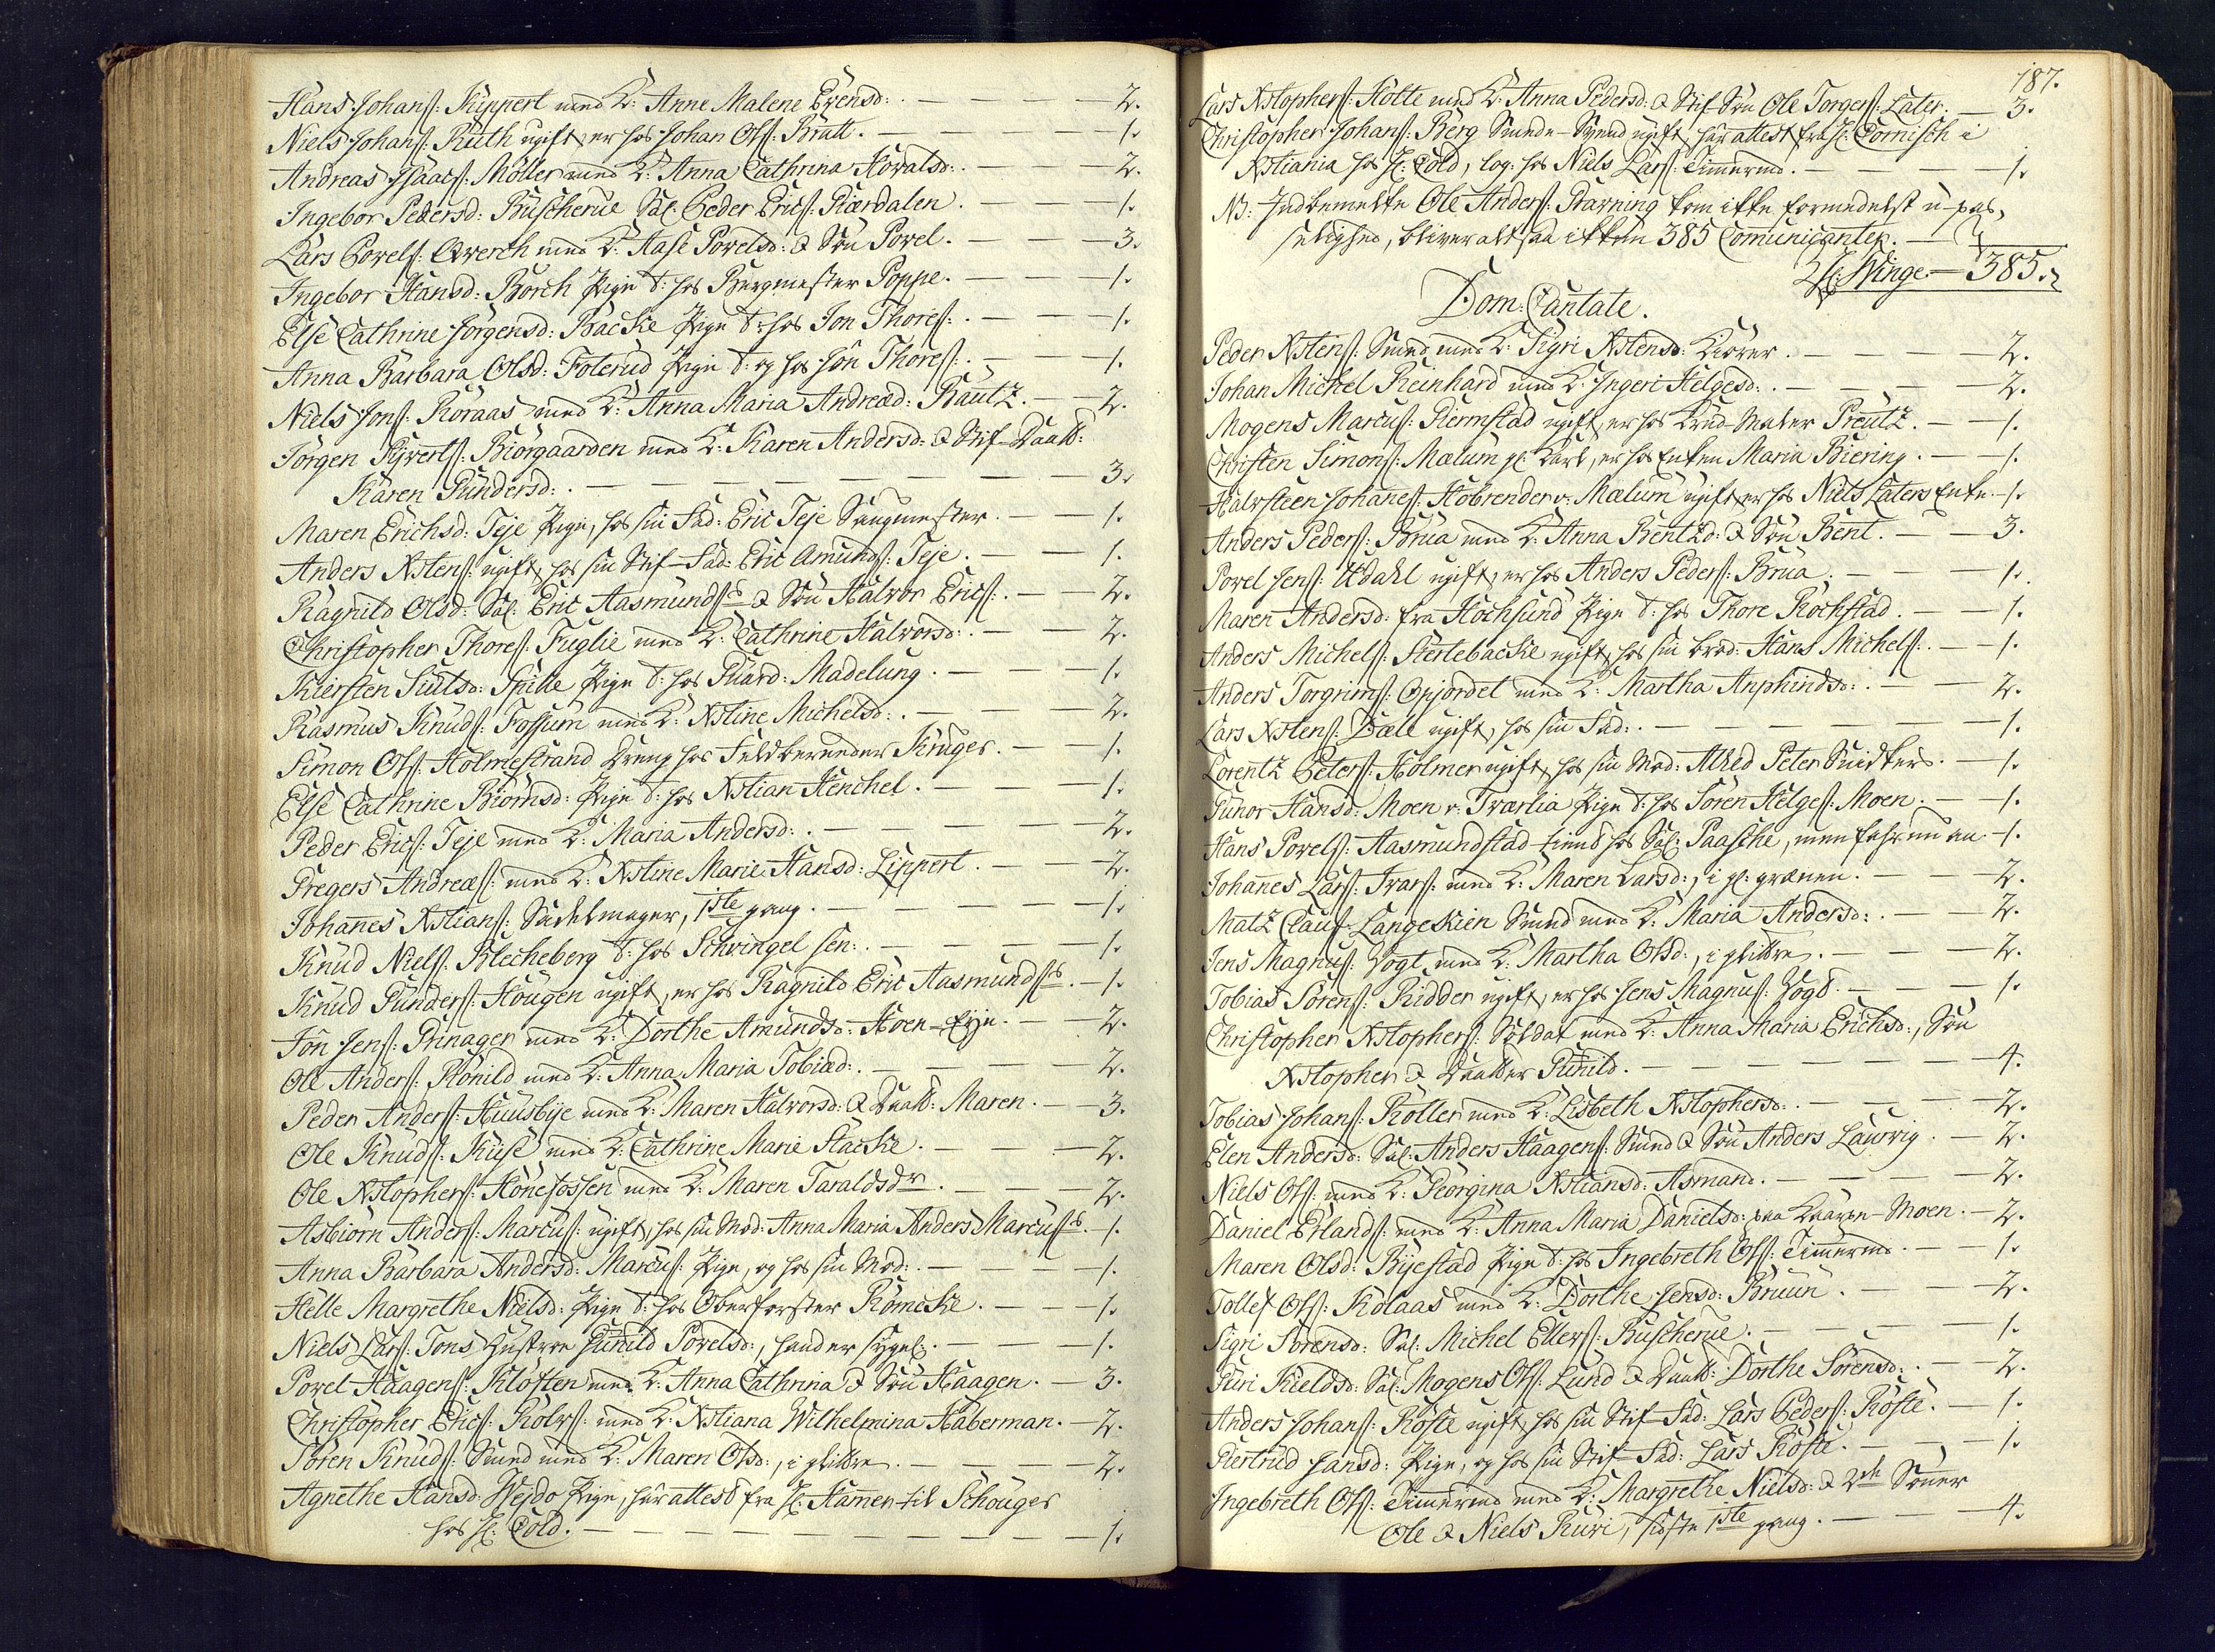 Hans Johans: Kippert med K: Anne Malene Evensd: . — — — 2.
Niels Johans: Ruth ugift, er hos Johan Ols: Bratt. — — — 1.
Andreas Isaacs: Möller med K: Anna Cathrina Howalsd: . — — 2.
Ingebor Pedersd: Buscherue Sal: Peder Erics: Kiærdalen . — — 1.
Lars Povels: Qwerch med K: Aase Povelsd: & Sön Povel. — — — 3.
Ingebor Hansd: Borch Pige t: hos Burgmester Poppe. — — — 1.
Else Cathrine Jörgensd: Backe Pige t: hos Jon Thores: . — — 1.
Anna Barbara Olsd: Foterud Pige t: og hos Jon Thores: . — — 1.
Niels Jons: Röraas med K: Anna Maria Andread: Rautz. — — 2.
Jörgen Syverts: Biörgaarden med K: Karen Andersd: & Stif-Daatt:
Karen Gundersd: . — — — 3.
Maren Erichsd: Teje Pige, hos sin Fad: Eric Teje Sangmester. — — 1.
Anders Xstens: ugift, hos sin Stif-Fad: Eric Amunds: Teje. — — 1.
Ragnild Olsd: Sal: Eric Aasmunds:s & Sön Halvor Erics: . — — 2.
Christopher Thores: Fuglie med K: Cathrine Halvorsd: . — — 2.
Kiersten Siulsd: Spille Pige t: hos Guard: Madelung. — — 1.
Rasmus Knuds: Fossum med K: Xstine Michelsd: . — — 2.
Simon Ols: Holmestrand Dreng hos Feldbereder Krüger. — — 1.
Else Cathrine Biörnsd: Pige t: hos Xstian Henchel. — — 1.
Peder Erics: Teje med K: Maria Andersd: . — — 2.
Gregers Andreæs: med K: Xstine Marie Hansd: Lippert. — — 2.
Johanes Xstians: Sadelmager, 1ste gang. — — 1.
Knud Niels: Blecheberg t: hos Schvingel sen: . — — 1.
Knud Gunders: Hougen ugift, er hos Ragnild Eric Aasmunds:s . — 1.
Jon Jens: Prinager med K: Dorthe Amundsd: Hoen-Eje. — — 2.
Ole Anders: Rönild med K: Anna Maria Tobiæd: . — — 2.
Peder Anders: Huusbye med K: Maren Halvorsd: & Daatt: Maren. — 3.
Ole Knuds: Kiise med K: Cathrine Marie Stacke. — — 2.
Ole Xstophers: Hönefossen med K: Maren Taraldsdr . — — 2.
Asbiörn Anders: Marcus: ugift, hos sin Mod: Anna Maria Anders Marcus:s . — 1.
Anna Barbara Andersd: Marcus: Pige, og hos sin Mod: . — — 1.
Helle Margrethe Nielsd: Pige t: hos Oberforster Römcke. — — 1.
Niels Lars: Tons Hustroe Gunild Povelsd: , hand er sygel: . — — 1.
Povel Haagens: Klöften med K: Anna Cathrina & Sön Haagen. — 3.
Christopher Erics: Rolvs: med K: Xstiana Wilhelmina Haberman. — 2.
Sören Knuds: Smed med K: Maren Olsd: , i glittre. — — 2.
Agnethe Hansd: Wejdo Pige, har attest fra H: Hammer til Schouger
hos H: Cold. — — — 1.
187.
Lars Xstophers: Holte med K: Anna Pedersd: & Stif-Sön Ole Torgers: Later. — 3.
Christopher Johans: Berg Smede-Svend ugift, har attest fra H: Cornisch i
Xstiania hos H: Cold, log: hos Niels Lars: Timmermd. — — 1.
NB: Indbemelte Ole Anders: Starning kom ikke formedelst u-pas,
selighed, bliver altsaa ikkun 385 Comunicanter. —
H: Winge. — 385.
Dom: Cantate.
Peder Xstens: Smed med K: Sigri Xstensd: Kiörer. — — 2.
Johan Michel Reinhard med K: Ingeri Helgesd: . — — 2.
Mogens Marcus: Hermstad ugift, er hos Krud-Maler Preutz. — — 1.
Christen Simons: Mælum gl: Karl, er hos Enken Maria Biering. — 1.
Halvsteen Johanes: Höbrender v: Mælum ugift, er hos Niels Laters Enke. — 1.
Anders Peders: Brua med K: Anna Bentzd: & Sön Bent. — — 3.
Povel Jens: Ædahl ugift, er hos Anders Peders: Brua. — — 1.
Maren Andersd: fra Hochsund Pige t: hos Thore Rochstad. — — 1.
Anders Michels: Stertebacke ugift, hos sin Brod: Hans Michels: . — 1.
Anders Torgrims: Opjordet med K: Martha Anphindsd: . — — 2.
Lars Xstens: Dæll ugift, hos sin Fad: . — — 1.
Lorentz Peters: Holmer ugift, hos sin Mod: Alhed Peter Snidkers. — 1.
Gunor Hansd: Moen v: Tværlia Pige t: hos Sören Helges: Moen. — 1.
Hans Povels: Aasmundstad tient hos Sal: Paasche, men fahr nu an. — 1.
Johannes Lars: Ivars: med K: Maren Larsd: , i gl: grænen. — — 2.
Matz Claus: Langeskien Smed med K: Maria Andersd: . — — 2.
Jens Magnus: Vogt med K: Martha Olsd: , i glittre. — — 2.
Tobias Sörens: Ridder ugift, er hos Jens Magnus: Vogt. — — 1.
Christopher Xstophers: Soldat med K: Anna Maria Erichsd: , Sön
Xstopher & Daatter Gunild. — — 4.
Tobias Johans: Kotler med K: Lisbeth Xstophersd: . — — 2.
Elen Andersd: Sal: Anders Haagens: Smed & Sön Anders Laurvig. — 2.
Niels Ols: med K: Georgina Xstiansd: Asmand. — — 2.
Daniel Erlands: med K: Anna Maria Danielsd: paa Kaaven-Moen. — 2.
Maren Olsd: Byestad Pige t: hos Ingebreth Ols: Timmermd. — — 1.
Tollef Ols: Kolaas med K: Dorthe Jensd: Bruun. — — 2.
Sigri Sörensd: Sal: Michel Ellers: Buscherue. — — 1.
Guri Kieldsd: Sal: Mogens Ols: Lund & Daatt: Dorthe Sörensd: . — 2.
Anders Johans: Röste ugift, hos sin Stif-Fad: Lars Peders: Röste. — 1.
Giertrud Jansd: Pige, og hos sin Stif-Fad: Lars Röste. — — 1.
Ingebreth Ols: Timmermd med K: Margrethe Nielsd: & 2de Sönner
Ole & Niels Ruri, sidste 1ste gang. — — 4.